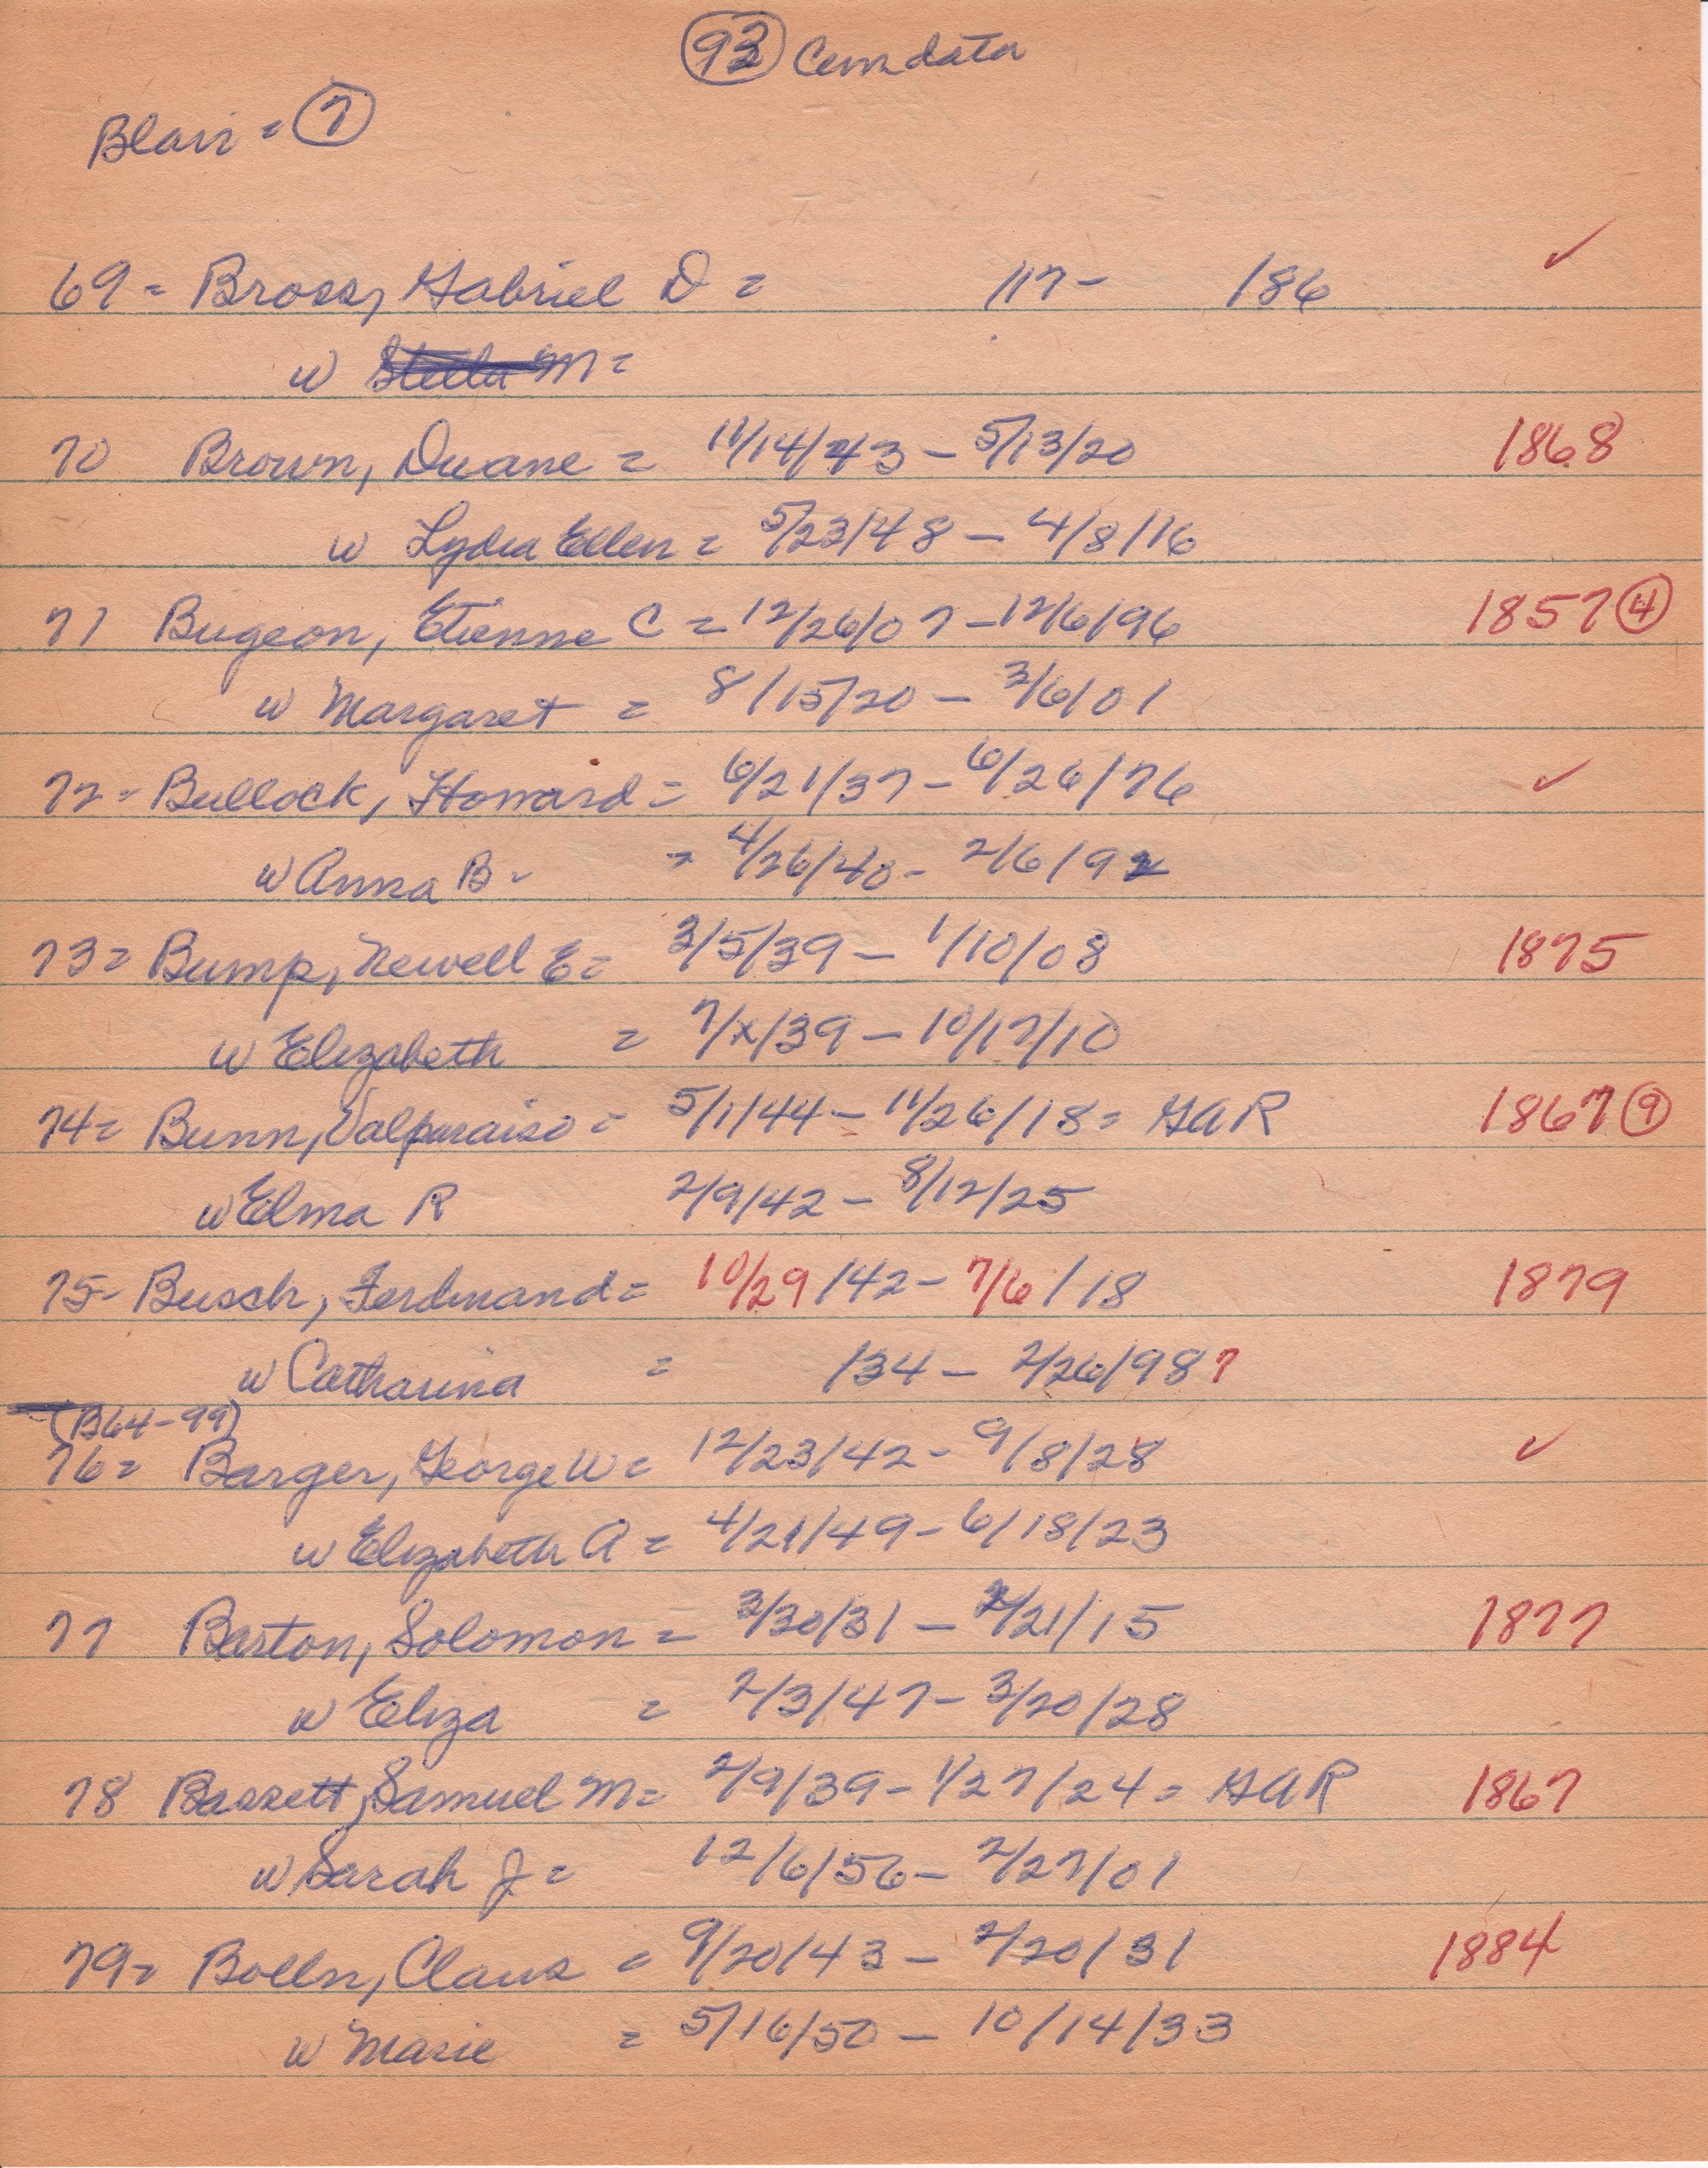 93 Cem data
Blair = 7
69 = Bross, Gabriel D = /17 - /86 ✓
w Stella M =
70 Brown, Duane = 11/14/43 - 5/13/20 1868
w Lydia Ellen = 5/23/48 - 4/8/16
71 Bugeon, Etienne C = 12/26/07 - 12/6/96 1857 4
w Margaret = 8/15/20 - 3/6/01
72 - Bullock, Howard = 6/21/37 - 6/26/76 ✓
w Anna B - = 4/26/40 - 2/6/92
73 = Bump, Newell E = 3/5/39 - 1/10/08 1875
w Elizabeth = 7/x/39 - 10/17/10
74 = Bunn, Valparaiso = 5/1/44 - 11/26/18 = GAR 1867 9
w Elma R 2/9/42 - 8/12/25
75 - Busch, Ferdinand = 10/29/42 - 7/6/18 1879
w Catharina = /34 - 2/26/98 ?
(B64-99)
76 = Barger, George W = 12/23/42 - 9/8/28 ✓
w Elizabeth A = 4/21/49 - 6/18/23
77 Barton, Solomon = 3/30/31 - 2/21/15 1877
w Eliza = 2/3/47 - 3/20/28
78 Bassett, Samuel M = 2/9/39 - 1/27/24 = GAR 1867
w Sarah J = 12/6/56 - 2/27/01
79 = Bolln, Claus = 9/20/43 - 2/20/31 1884
w Marie = 5/16/50 - 10/14/33